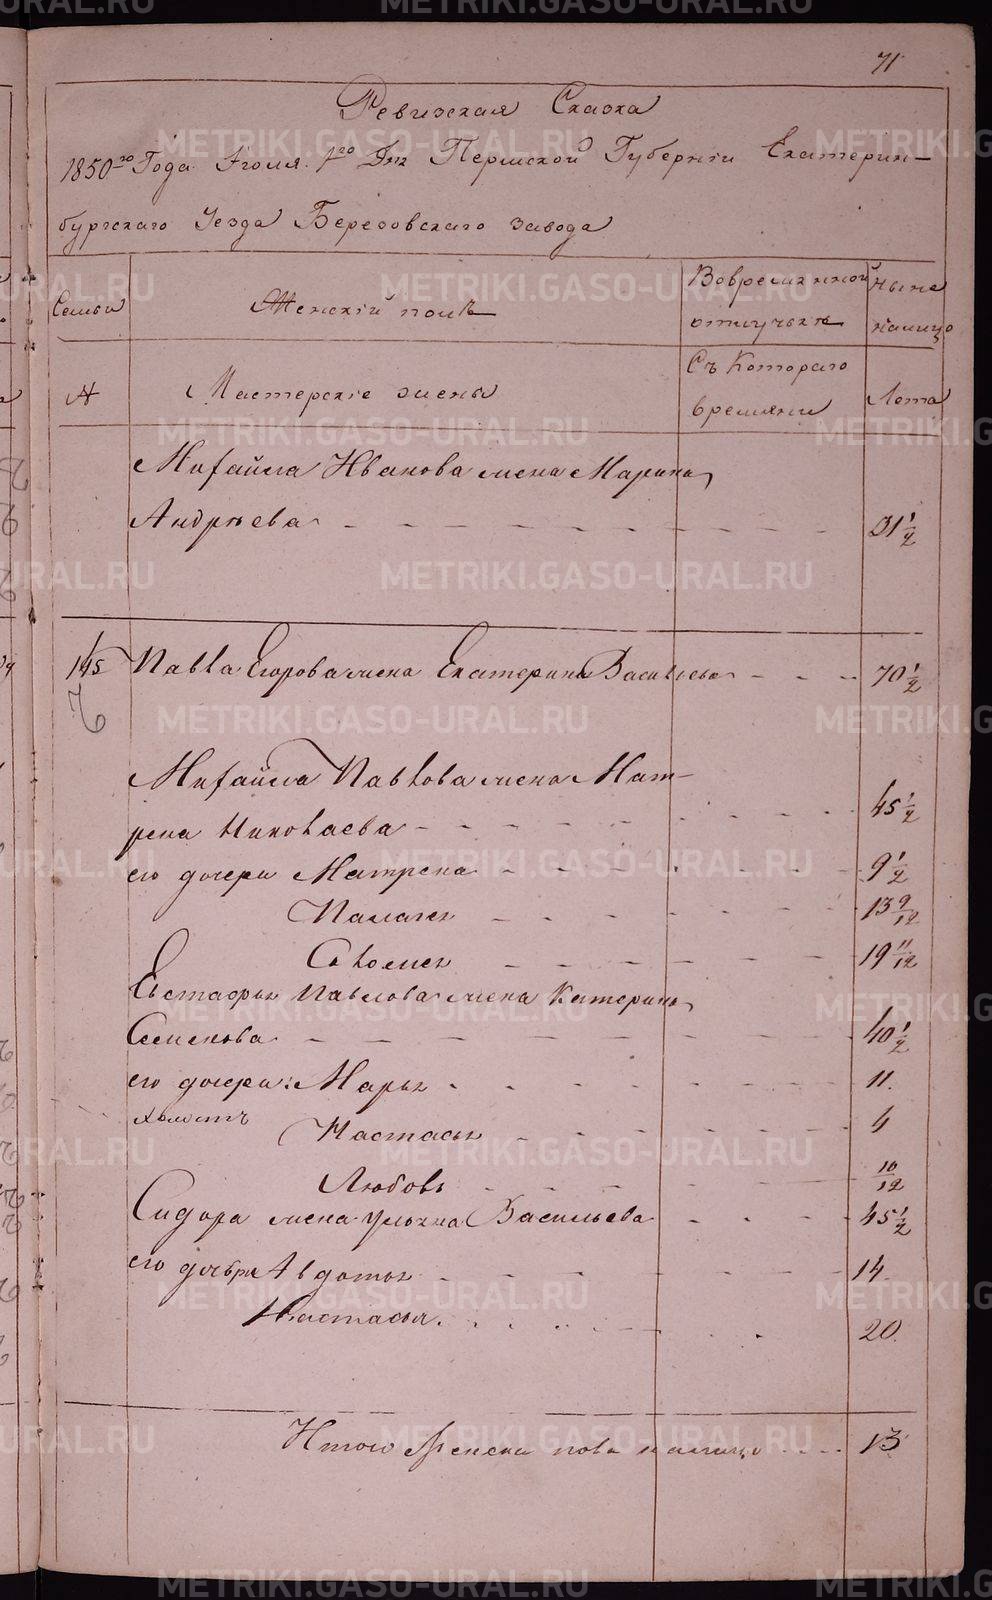 71
Ревизская Сказка
1850го Года Июля 1го Дня Пермской Губернiи Екатерин-
бургскаго Уезда Березовскаго завода
Семьи
Женскiй полъ
Вовремянной отлучьке
Ныне налицо
№
Мастерскiе жены
Съ Котораго времяни
Лета
Михайла Иванова жена Марина
Андреева 31 1/2
145 Павла Егорова жена Екатерина Васильева 70 1/2
Михайла Павлова жена Мат-
рена Николаева 45 1/2
его дочери Матрена 9 1/2
Палагея 13 9/12
Соломея 19 11/12
Евстафья Павлова жена Катерина
Семенова 40 1/2
его дочери: Марья 11.
Настасья 4
Любовь 10/12
Сидора жена Ульяна Васильева 45 1/2
его дочери Авдотья 14.
Настасья. 20.
Итого Женска пола налицо 13
METRIKI.GASO-URAL.RU